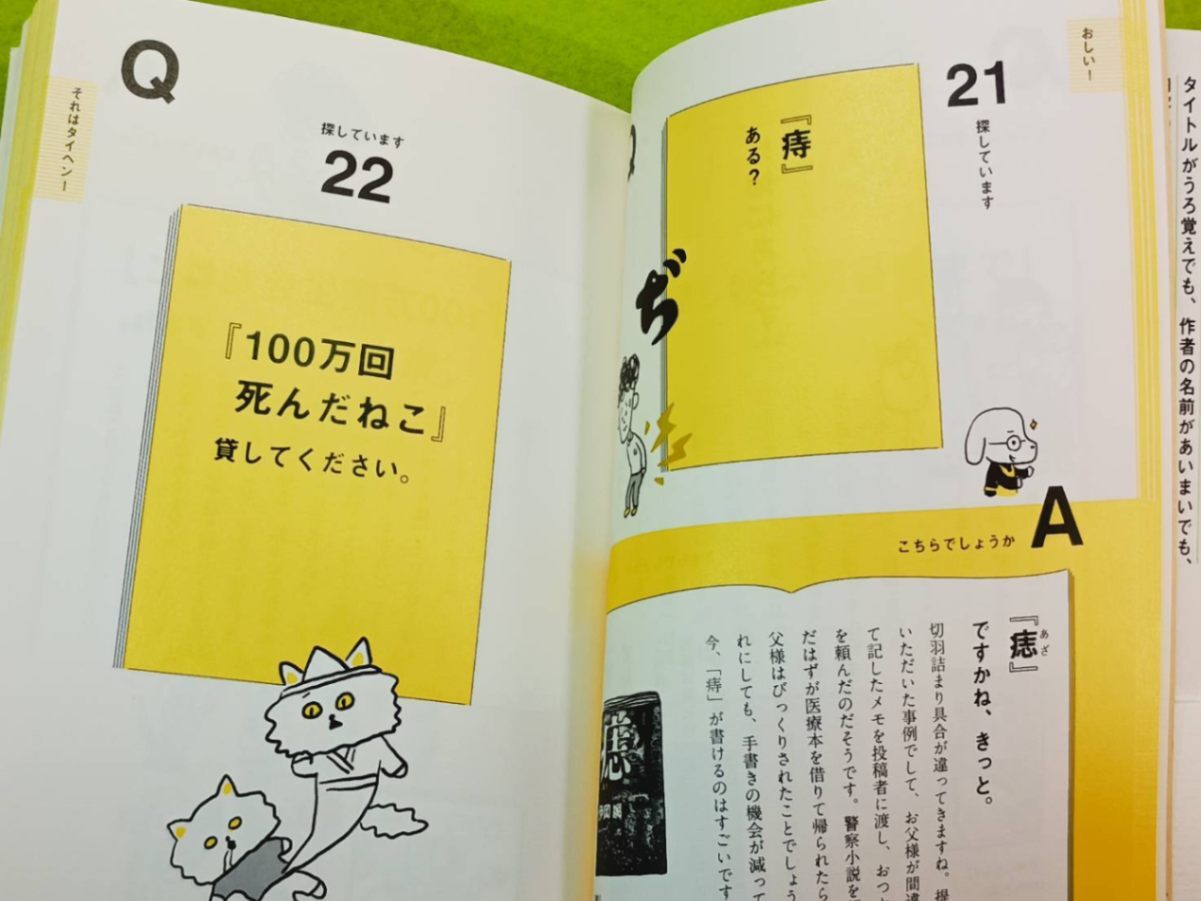 タイトルがうろ覚えでも、作者の名前があいまいでも、
おしい！
21
探しています
『痔』
ある？
ぢ
A
こちらでしょうか
『痣』
あざ
ですかね、きっと。
切羽詰まり具合が違ってきますね。提
いただいた事例でして、お父様が間違
て記したメモを投稿者に渡し、おつ
を頼んだのだそうです。警察小説を
だはずが医療本を借りて帰られたら
父様はびっくりされたことでしょう
れにしても、手書きの機会が減って
今、「痔」が書けるのはすごいです
痣
それはタイヘン！
Q
探しています
22
『100万回
死んだねこ』
貸してください。